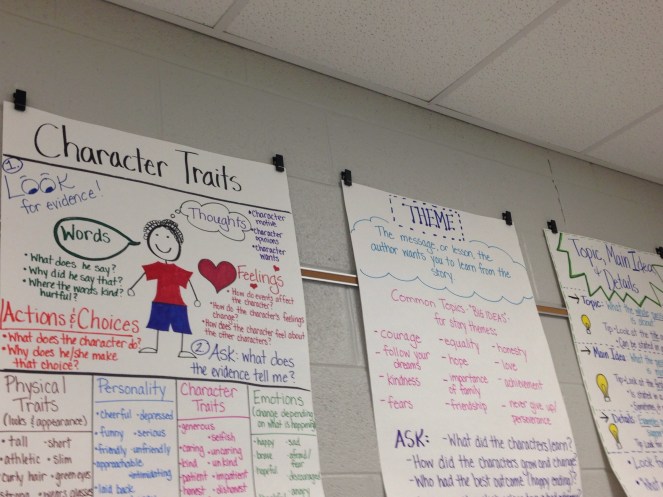 Character Traits
1.
LOOK
for evidence!
Thoughts
•Character
motive
•Character
opinions
•Character
wants
Words
•What does he say?
•Why did he say that?
•Where the words kind?
hurtful?
Feelings
•How do events affect
the character?
•How do the character's feelings
change?
•How does the character feel about
the other characters?
Actions & Choices
•What does the character do?
•Why does he/she make
that choice?
2 Ask: what does
the evidence tell me?
Physical
Traits
(looks & appearance)
•tall •short
•athletic •slim
•curly hair •green eyes
•strong •wears glasses
Personality
•cheerful •depressed
•funny •serious
•friendly •unfriendly
•approachable
•intimidating
•laid back
Character
Traits
•generous
•selfish
•caring •uncaring
•kind •unkind
•patient •impatient
•honest •dishonest
Emotions
(change depending
on what is happening
•happy •sad
•brave •afraid/
fear
•hopeful •discouraged
•angry
THEME
The message, or lesson, the
author wants you to learn from the
story.
Common Topics "BIG IDEAS"
for story themes:
•courage •equality •honesty
•follow your
dreams •hope •love
•kindness •importance
of family •achievement
•fears •friendship •never give up/
perseverance
ASK: -What did the characters learn?
-How did the characters grow and change
-Who had the best outcome? (happy ending)
Topic, Main Idea
& Details
Topic: what the
possible is
-Look at the title
Main Idea
-Look at the
Details:
-Look